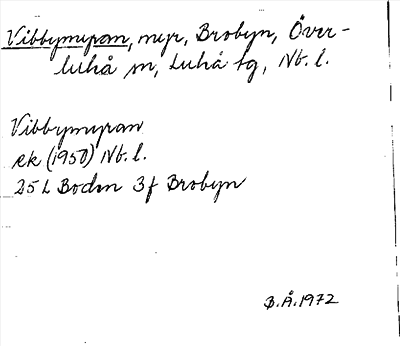 Vibbymyran, myr, Brobyn, Över-
luhå sn, Luhå tg, Nb. l.
Vibbymyran
ek (1950) Nb. l.
25 L Boden 3f Brobyn
B.Å. 1972